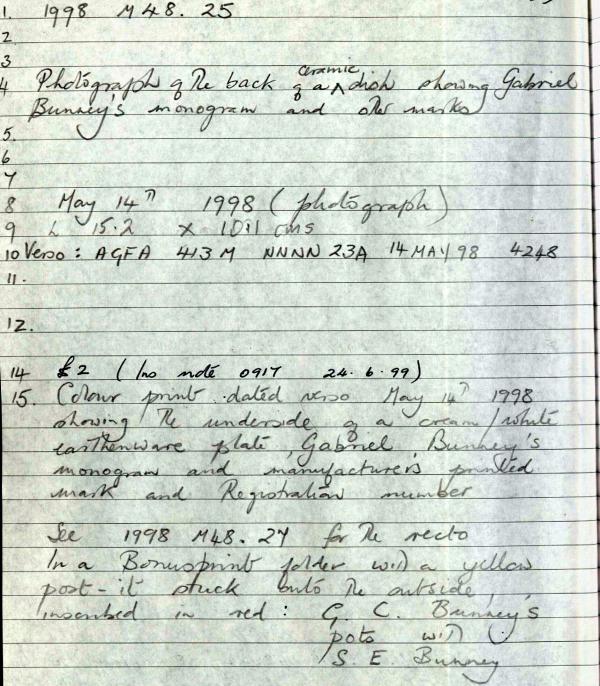 1. 1998 M48. 25
2
3
4 Photograph of the back of a ceramic dish showing Gabriel
Bunney's monogram and other marks
5.
6
7
8 May 14th 1998 (photograph)
9 L 15.2 x 10.1 cms
10 Verso: AGFA 413M NNNN 23A 14MAY98 4248
11.
12.
14 £2 (Ins note 0917 24.6.99)
15. Colour print dated verso May 14th 1998
showing the underside of a cream/white
earthenware plate, Gabriel Bunney's
monogram and manufacturers printed
mark and Registration number
See 1998 M48.24 for the recto
In a Bonusprint folder with a yellow
post-it stuck onto the outside,
inscribed in red: G. C. Bunney's
pots with
S. E. Bunney